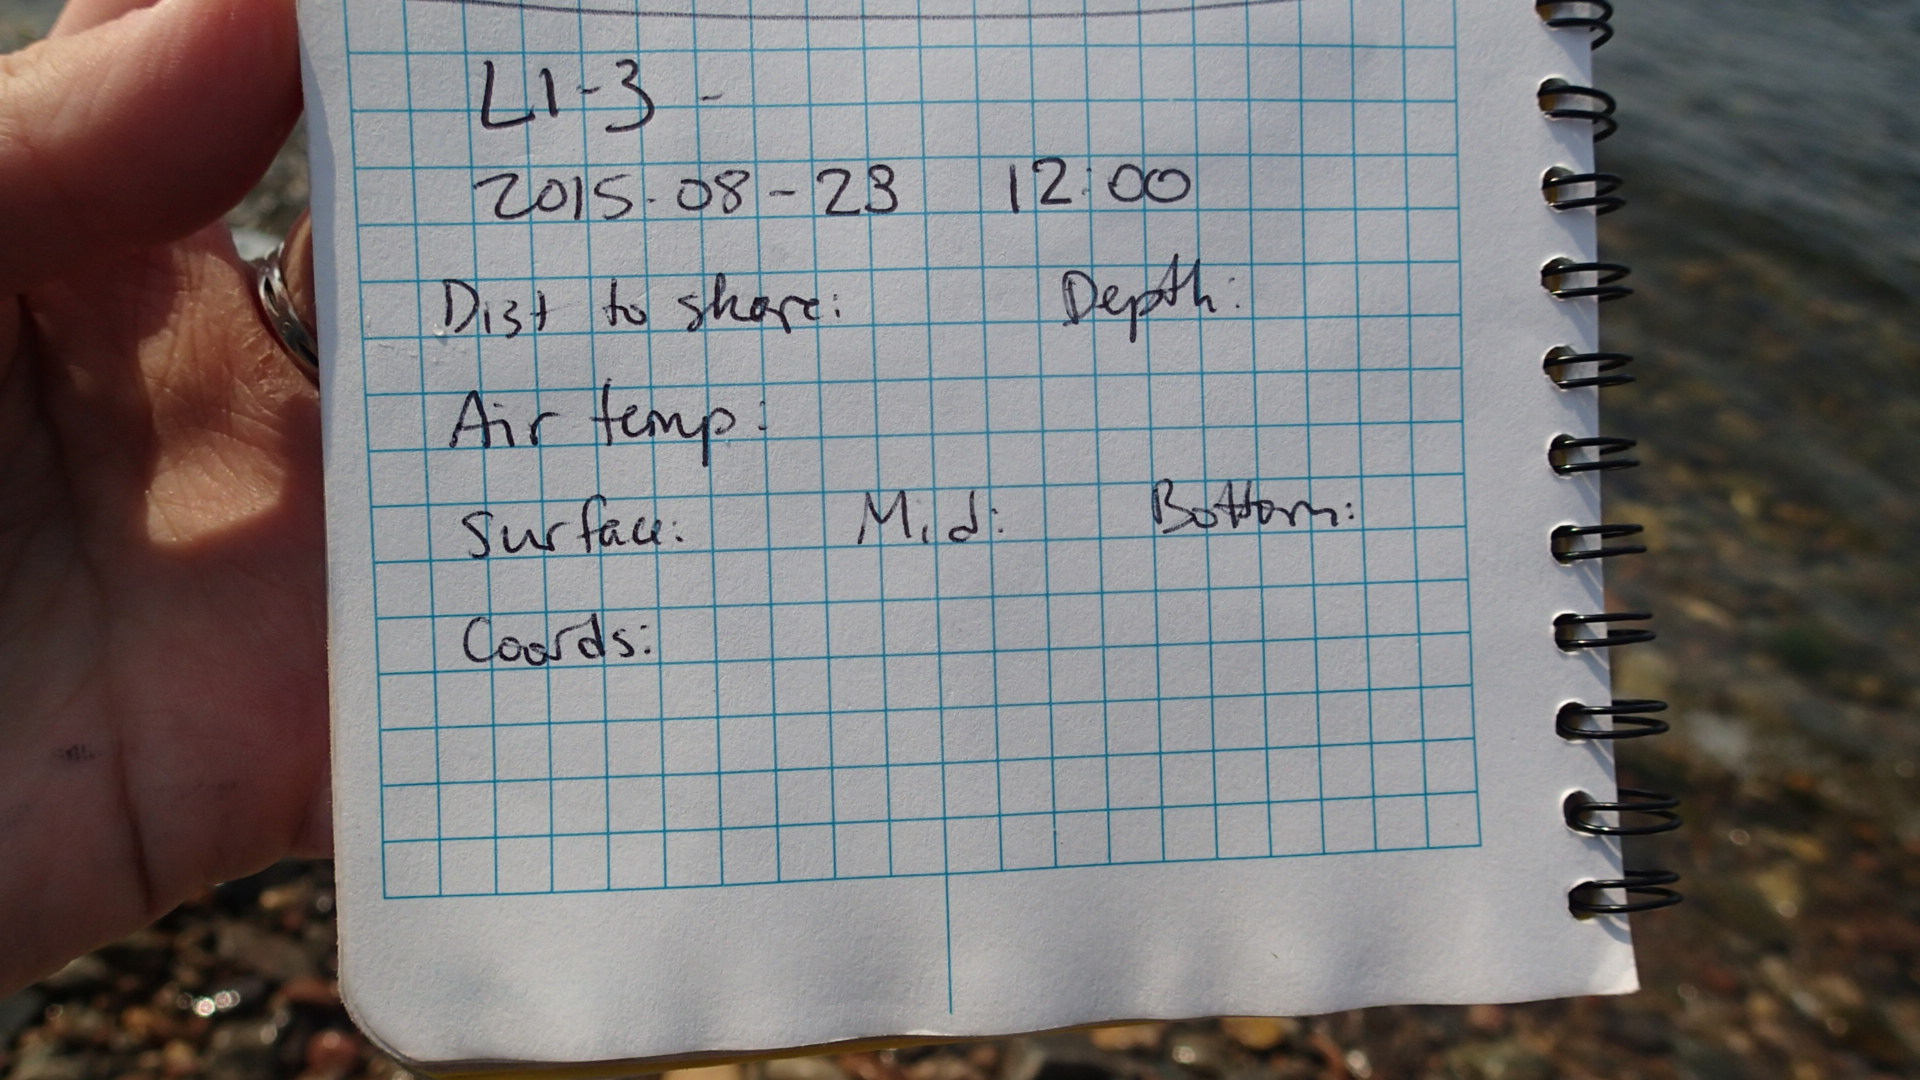 L1-3 -
2015-08-23 12:00
Dist to shore: Depth:
Air temp:
Surface: Mid: Bottom:
Coords: